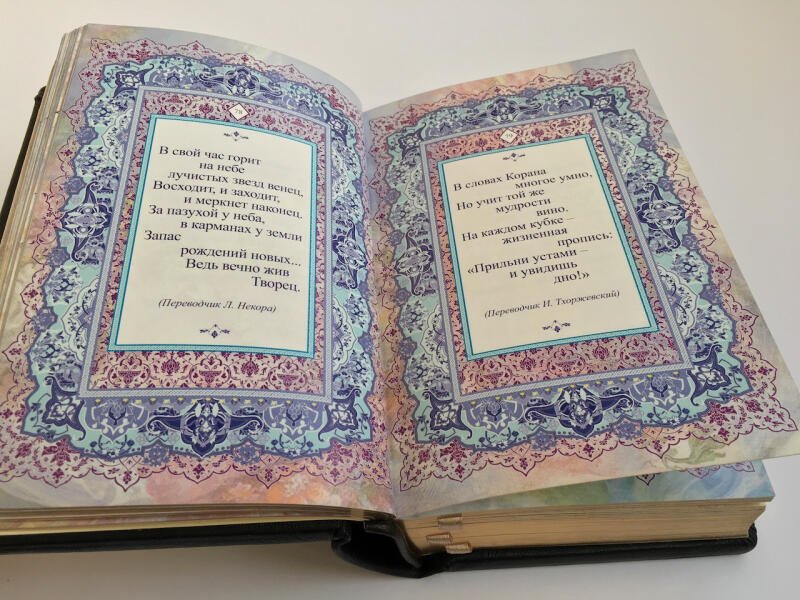 В свой час горит
на небе
лучистых звезд венец,
Восходит, и заходит,
и меркнет наконец.
За пазухой у неба,
в карманах у земли
Запас
рождений новых...
Ведь вечно жив
Творец.
(Переводчик Л. Некора)
В словах Корана
многое умно,
Но учит той же
мудрости
вино.
На каждом кубке –
жизненная
пропись:
«Прильни устами –
и увидишь
дно!»
(Переводчик И. Тхоржевский)